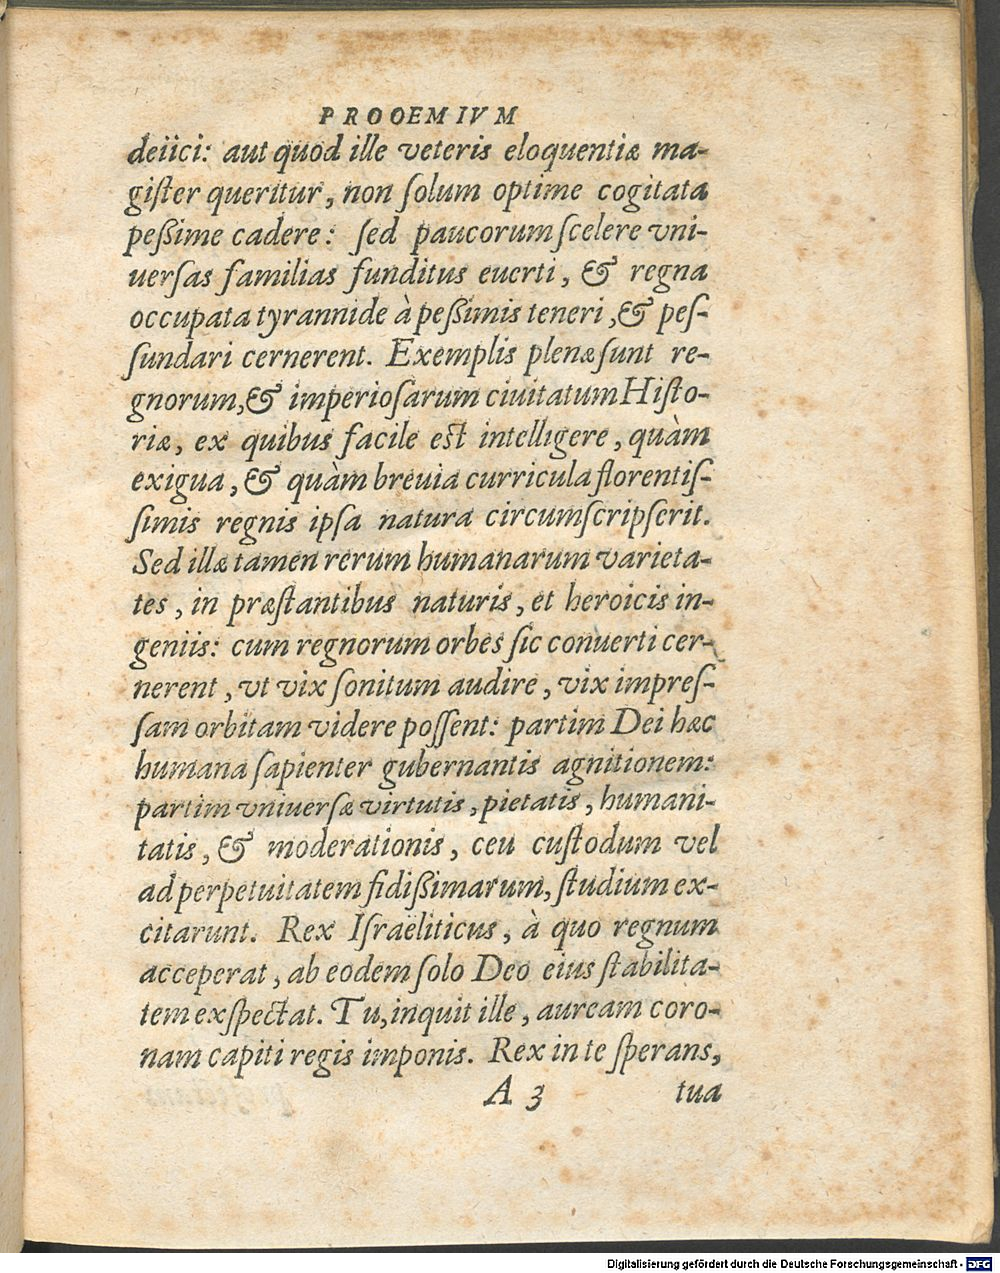 PROOEMIVM
deiici: aut quod ille veteris eloquentiæ ma-
giſter queritur, non ſolum optime cogitata
peßime cadere: ſed paucorum ſcelere vni-
uerſas familias funditus euerti, & regna
occupata tyrannide à peßimis teneri, & peſ-
ſundari cernerent. Exemplis plenæ ſunt re-
gnorum, & imperioſarum ciuitatum Hiſto-
riæ, ex quibus facile eſt intelligere, quàm
exigua, & quàm breuia curricula florentiſ-
ſimis regnis ipſa natura circumſcripſerit.
Sed illæ tamen rerum humanarum varieta-
tes, in præſtantibus naturis, et heroicis in-
geniis: cum regnorum orbes ſic conuerti cer-
nerent, vt vix ſonitum audire, vix impreſ-
ſam orbitam videre poſſent: partim Dei hæc
humana ſapienter gubernantis agnitionem:
partim vniuerſæ virtutis, pietatis, humani-
tatis, & moderationis, ceu cuſtodum vel
ad perpetuitatem fidißimarum, ſtudium ex-
citarunt. Rex Iſraëliticus, à quo regnum
acceperat, ab eodem ſolo Deo eius ſtabilita-
tem exſpectat. Tu, inquit ille, auream coro-
nam capiti regis imponis. Rex in te ſperans,
A 3 tua
Digitalisierung gefördert durch die Deutsche Forschungsgemeinschaft - DFG